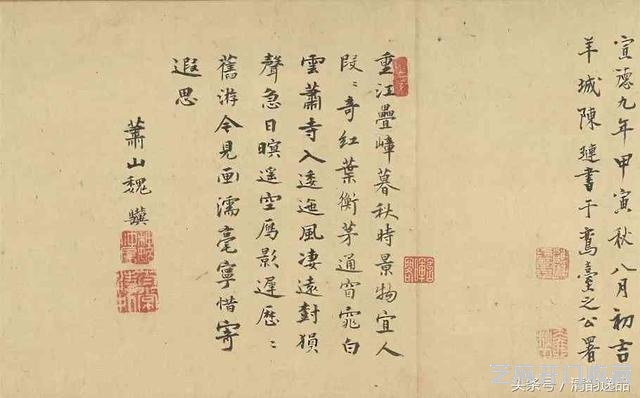 宣德九年甲寅秋八月初吉
羊城陳璉書于鸞臺之公署
重江疊嶂暮秋時景物宜人
段〻奇紅葉衡茅通窅窕白
雲蕭寺入逶迤風凄遠樹猨
聲急日暝遥空雁影遲歷〻
舊游今見画濡毫寧惜寄
遐思
蕭山魏驥
头条号 / 清韵逸品